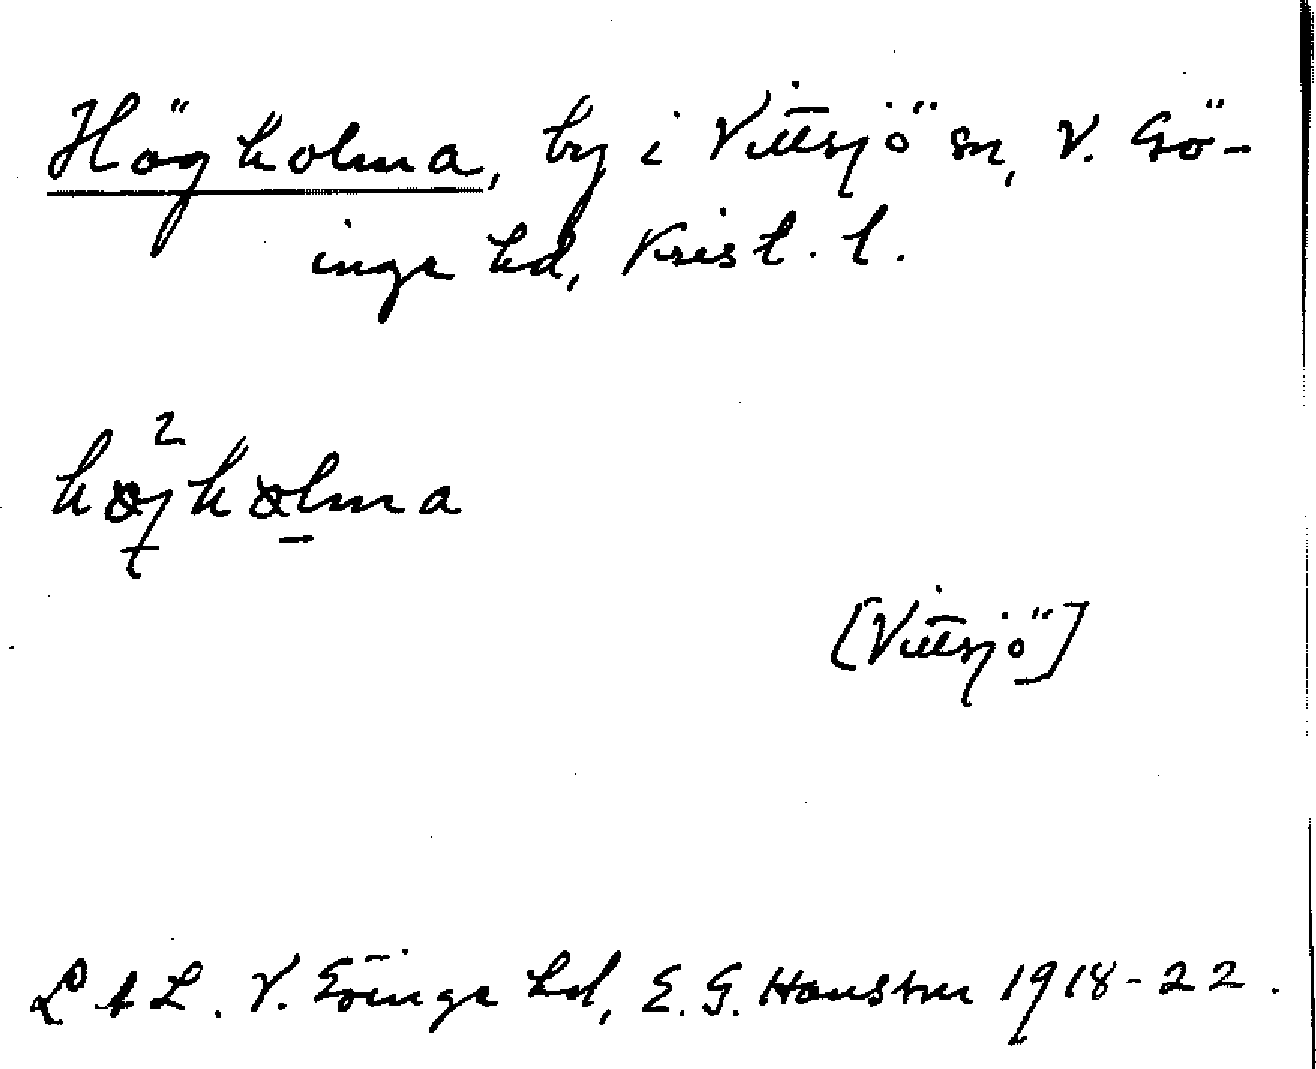 Högholma, by i Vittsjö sn, V. Gö-
inge hd, Krist. l.
[Vittsjö]
V. Göinge hd, E. G. Hansson 1918-22.